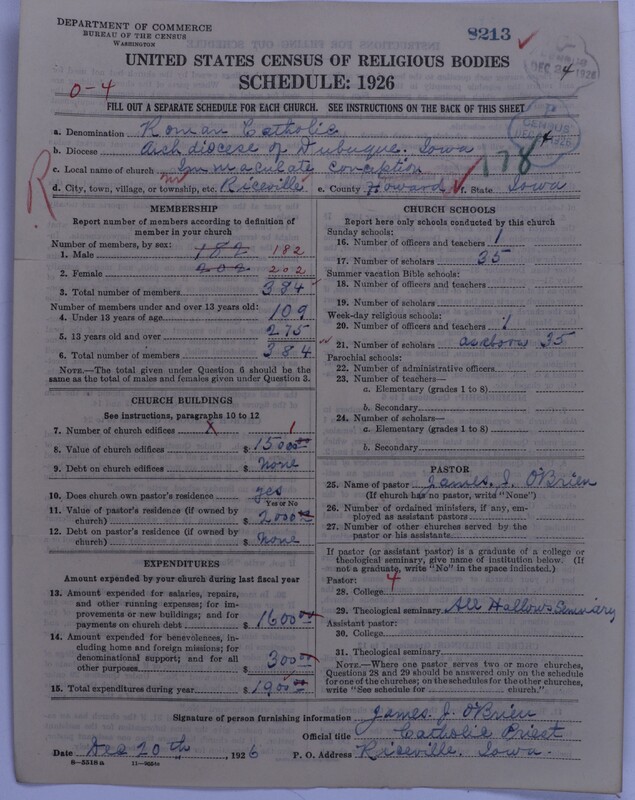 DEPARTMENT OF COMMERCE
BUREAU OF THE CENSUS
WASHINGTON
8213
UNITED STATES CENSUS OF RELIGIOUS BODIES
SCHEDULE: 1926
DEC 24 1926
0-4
FILL OUT A SEPARATE SCHEDULE FOR EACH CHURCH. SEE INSTRUCTIONS ON THE BACK OF THIS SHEET
CENSUS
1926
a. Denomination Roman Catholic
b. Diocese Arch diocese of Dubuque. Iowa
178 4
c. Local name of church Immaculate conception
R
d. City, town, village, or township, etc. Riceville. e. County Howard f. State Iowa
MEMBERSHIP
Report number of members according to definition of member in your church
Number of members, by sex:
1. Male 182 182
2. Female 202 202
3. Total number of members 384
Number of members under and over 13 years old:
4. Under 13 years of age 109
5. 13 years old and over 275
6. Total number of members 384
NOTE.—The total given under Question 6 should be the same as the total of males and females given under Question 3.
CHURCH BUILDINGS
See instructions, paragraphs 10 to 12
7. Number of church edifices 1
8. Value of church edifices $ 15000 00
9. Debt on church edifices $ None
10. Does church own pastor's residence yes
Yes or No
11. Value of pastor's residence (if owned by church) $ 2000 00
12. Debt on pastor's residence (if owned by church) $ None
EXPENDITURES
Amount expended by your church during last fiscal year
13. Amount expended for salaries, repairs, and other running expenses; for improvements or new buildings; and for payments on church debt $ 1600 00
14. Amount expended for benevolences, including home and foreign missions; for denominational support; and for all other purposes $ 300 00
15. Total expenditures during year $ 1900 00
CHURCH SCHOOLS
Report here only schools conducted by this church
Sunday schools:
16. Number of officers and teachers 1
17. Number of scholars 35
Summer vacation Bible schools:
18. Number of officers and teachers
19. Number of scholars
Week-day religious schools:
20. Number of officers and teachers 1
21. Number of scholars as above 35
Parochial schools:
22. Number of administrative officers
23. Number of teachers—
a. Elementary (grades 1 to 8)
b. Secondary
24. Number of scholars—
a. Elementary (grades 1 to 8)
b. Secondary
PASTOR
25. Name of pastor James. J. O'Brien
(If church has no pastor, write "None")
26. Number of ordained ministers, if any, employed as assistant pastors
27. Number of other churches served by the pastor or his assistants
If pastor (or assistant pastor) is a graduate of a college or theological seminary, give name of institution below. (If not a graduate, write "No" in the space indicated.)
Pastor: 4
28. College
29. Theological seminary All Hallows Seminary
Assistant pastor:
30. College
31. Theological seminary
NOTE.—Where one pastor serves two or more churches, Questions 28 and 29 should be answered only on the schedule for one of the churches; on the schedules for the other churches, write "See schedule for church."
Signature of person furnishing information James. J. O'Brien
Official title Catholic Priest
Date Dec 20th, 1926 P. O. Address Riceville. Iowa.
8-5518 a